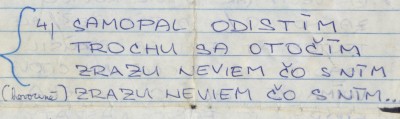 4, SAMOPAL ODISTÍM
TROCHU SA OTOČÍM
ZRAZU NEVIEM ČO S NÍM
(hovorené) ZRAZU NEVIEM ČO S NÍM..